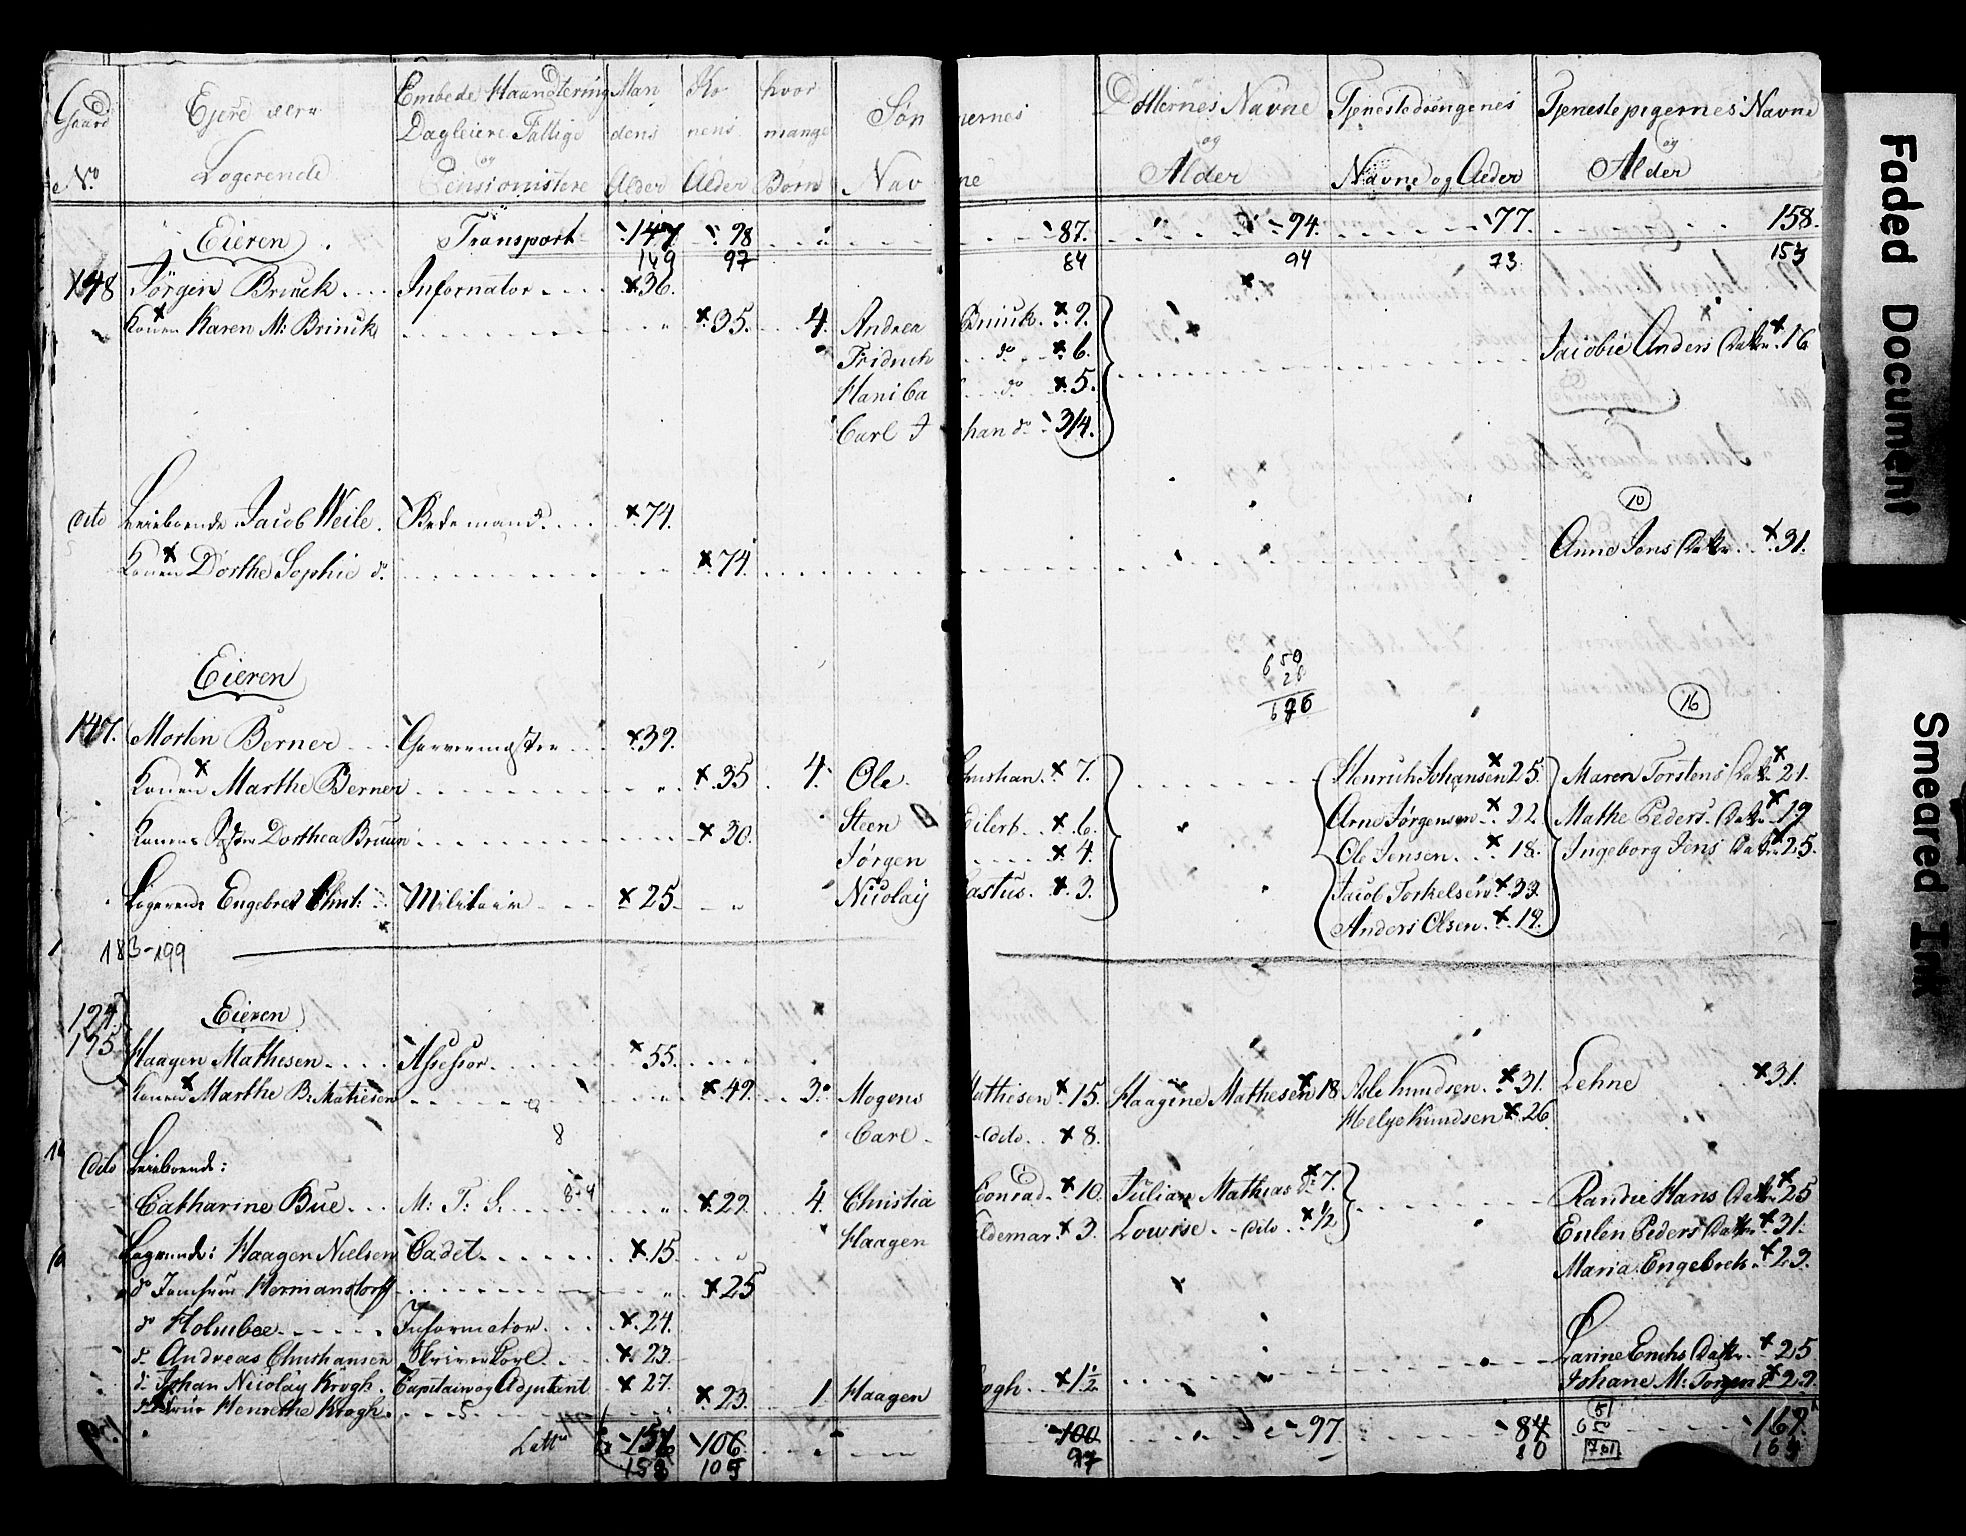 Gaard No Ejere eller Logerende Embede Haandtering Dagleiere Fattige og Pensionistere Mandens Alder Konens Alder hvor mange Børn Sønnernes Navne Døttrernes Navne og Alder Tjenestedrengenes Navne og Alder Tjenestepigernes Navne og Alder
Eieren Transport 147. 98 87. 94. 77. 158.
149 97 84 94 73 153
148 Jørgen Brinck Informator 36.
Konen Karen M: Brinck 35. 4. Andrea Brinck 9. Jacobie Anders Datter 16
Fridrich do 6.
Haniba do 5.
Carl Johan do 3/4.
10
dito Leieboende Jacob Weile. Bedemand. 74.
Konen Dorthe Sophie do. 74. Anne Jens Datter 31.
650
26
676
Eieren
16
147. Morten Berner Garvermester 39.
Konen Marthe Berner 35 4. Ole Christian 7. Henrich Johansen 25. Maren Torstens Datter 21.
Steen Eilert 6. Arne Jørgensen 22 Mathe Peders Datter 19
Konens Søster Dorthea Bruun 30. Jørgen 4. Ole Jensen 18. Ingeborg Jens Datter 25.
Logerende Engebret Militair 25 Nicolay 3. Jacob Torkelsen 33.
Anders Olsen 19.
183-199
124. Eieren
125 Haagen Mathesen Assessor 55.
Konen Marthe B: Mathiesen 49. 3. Mogens Mathiesen 15. Haagine Mathesen 18 Asle Knudsen 31. Lehne 31.
Carl dito 8. Helge Knudsen 26
8
dito Leieboende:
Catharine Bue M: T: S. 29. 4. Christia Conrad 10. Julian Mathias do 7. Randie Hans Datter 25
Haagen ldemar 3. Lowise dito 1/2 Eulen Peders Datter 31.
Logerende: Haagen Nielsen Cadet 15 Maria Engebrets 23.
do Jomfrue Hermanstorff 25
do Holmboe Informator 24.
do Andreas Christiansen Skriverkarl 23. Larine Erichs Datter 25
do Johan Nicolay Krogh. Capitain og Adjutant 27. 1. Haagen Krogh 1 1/2 Johane M: Torgen 22.
do Frue Henrethe Krogh 23.
Latt 156 106. 100 97 84 169.
158 105 97 80 701 163
Faded Document
Smeared Ink